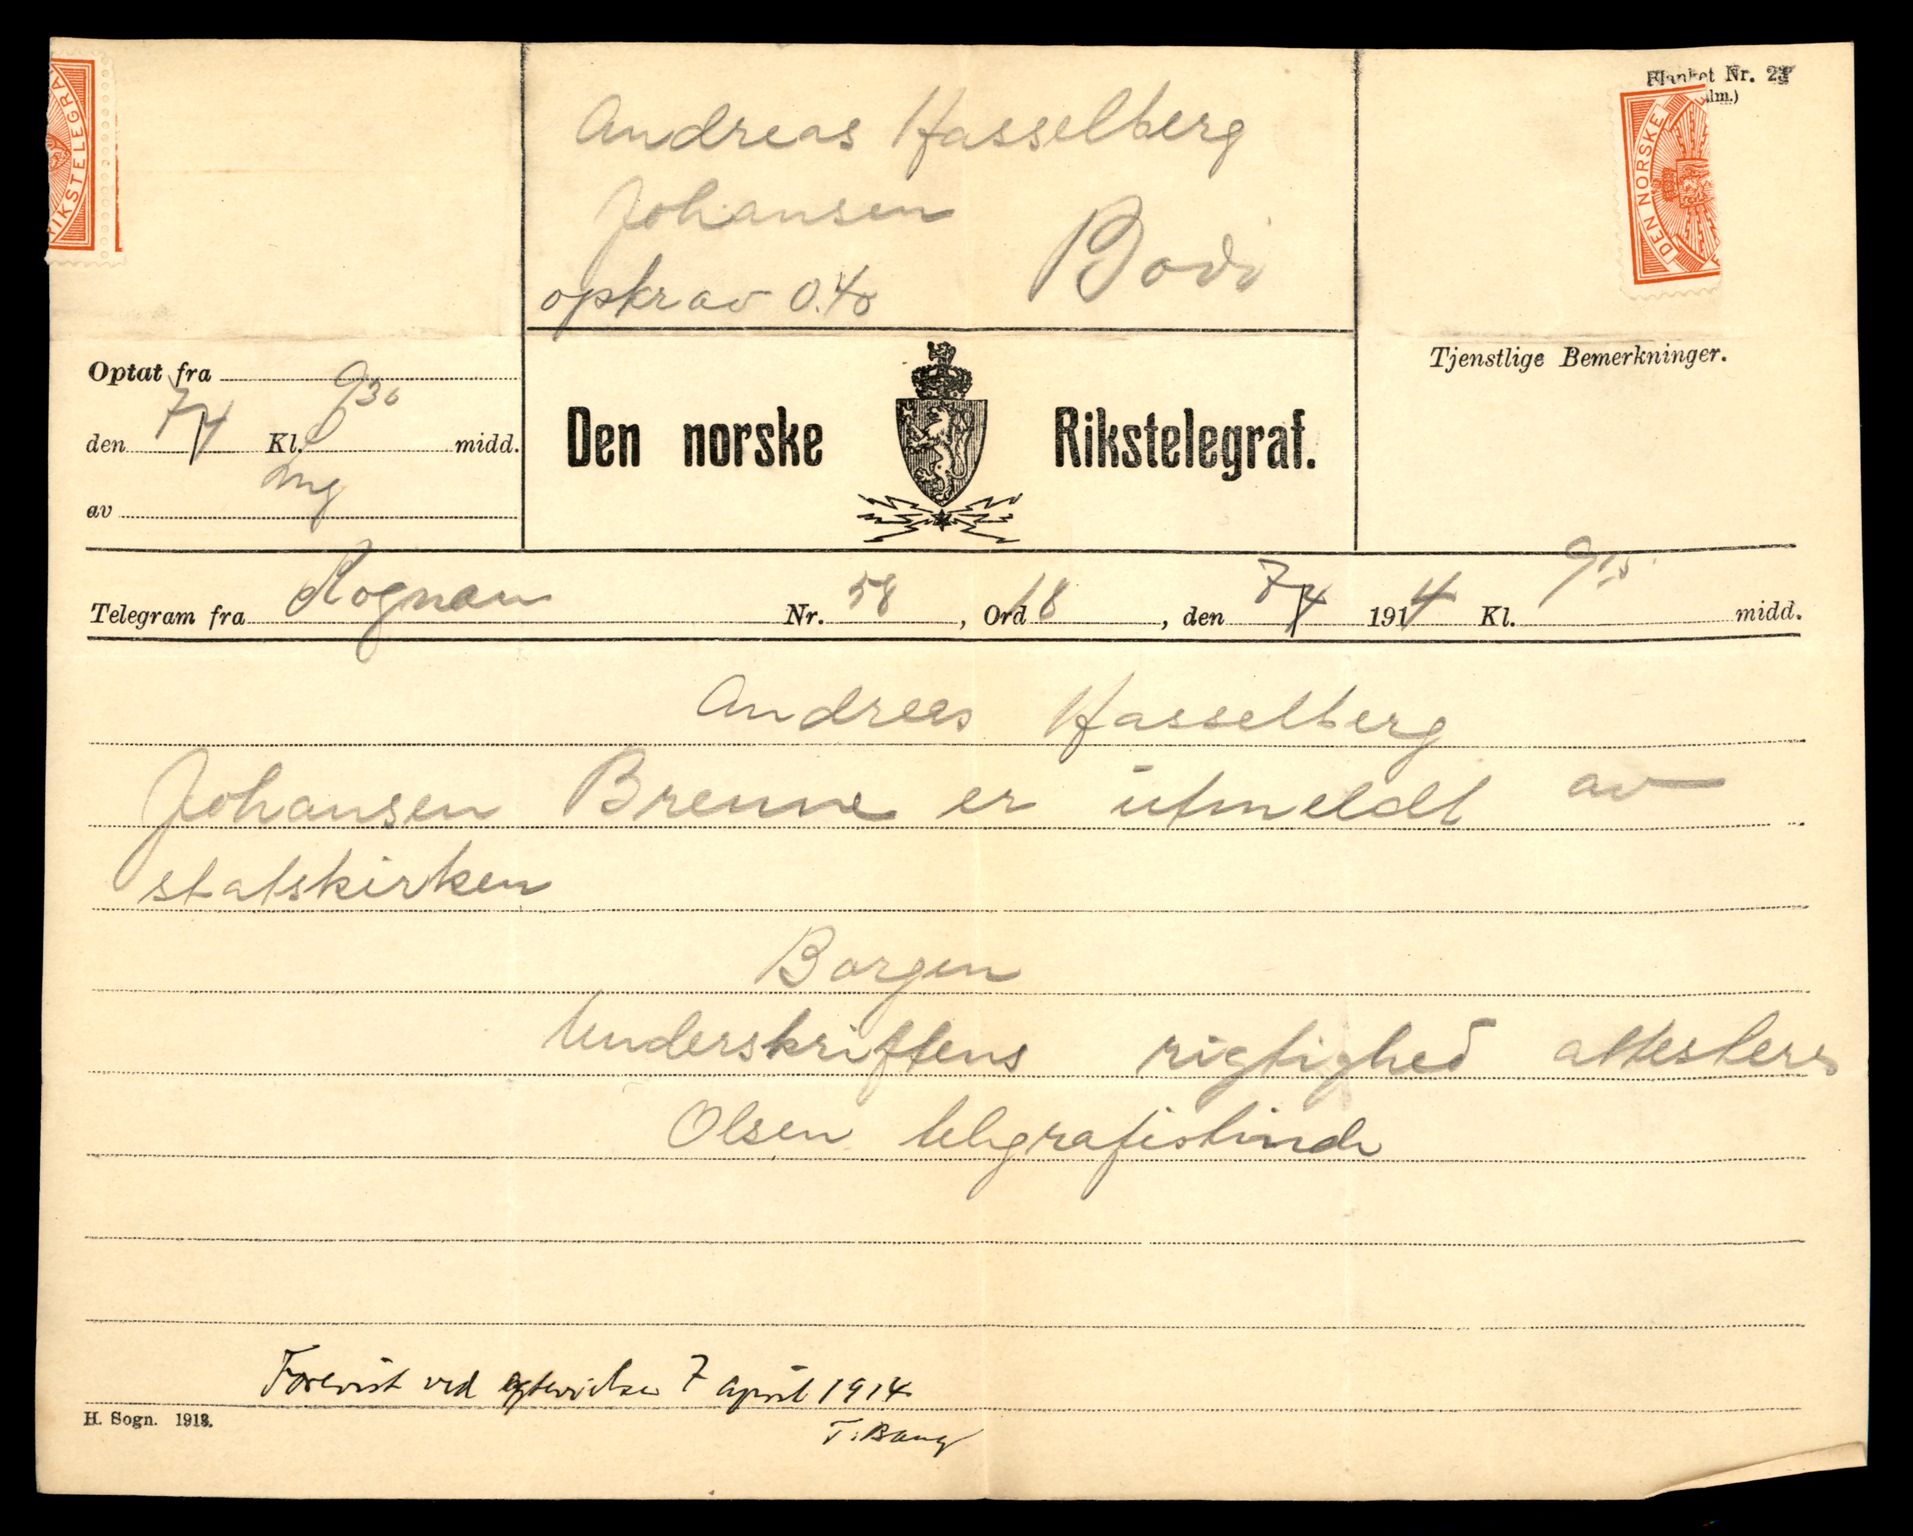 Blanket Nr. 21
RIKSTELEGRA
DEN NORSKE
Andreas Hasselberg
Johansen
Bodö
opkrav 0.40
Optat fra
den 7/4 Kl. 9 30 midd.
av
Den norske Rikstelegraf.
Tjenstlige Bemerkninger.
Telegram fra Rognan Nr. 58, Ord 18, den 7/4 1914 Kl. 9 15 midd.
Andreas Hasselberg
Johansen Brenne er utmeldt av
statskirken
Borgen
Underskriftens rigtighed attesteres
Olsen telegrafistinde
Forevist ved egtevielse 7 april 1914
T. Bang
H. Sogn. 1913.